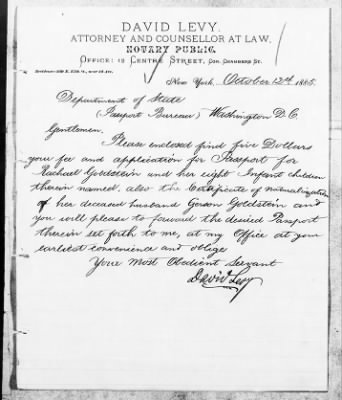 DAVID LEVY.
ATTORNEY AND COUNSELLOR AT LAW,
NOTARY PUBLIC,
OFFICE: 19 CENTRE STREET, COR. CHAMBERS ST.
New York, October 12th 1885.
Department of State
(Passport Bureau) Washington D.C.
Gentlemen.
Please enclosed find five Dollars
your fee and application for Passport for
Rachael Goldstein and her eight Infant children
therein named. also the Certificate of naturalization
of her deceased husband Gerson Goldstein and
you will please to forward the desired Passport
therein set forth to me, at my Office at your
earliest convenience and oblige
Your Most Obedient Servant
David Levy